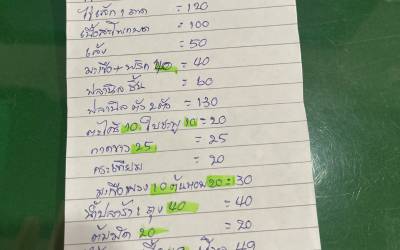 ไข่เล็ก 1 ถาด = 120
เนื้อสะโพกหมด = 100
เส้ง = 50
มะเขือ + พริก 40 = 40
ปลานิล ชิ้น = 60
ปลานิล ตัว 2 ตัว = 130
ตะไคร้ 10 ใบชะพู 10 = 20
กาดขาว 25 = 25
กระเทียม = 20
มะเขือพวง 10 ต้นหอม 20 = 30
น้ำปลาร้า 1 ถุง 40 = 40
20 = 20
= 49